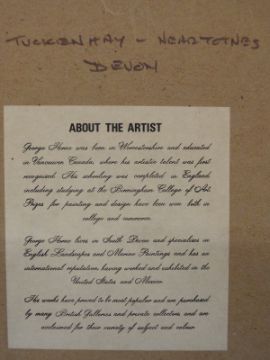 TUCKENHAY - NEAR TOTNES
DEVON
ABOUT THE ARTIST
George Horne was born in Worcestershire and educated
in Vancouver Canada, where his artistic talent was first
recognised. His schooling was completed in England
including studying at the Birmingham College of Art
Prizes for painting and design have been won both in
college and commerce.
George Horne lives in South Devon and specialises in
English Landscapes and Marine Paintings and has an
international reputation, having worked and exhibited in the
United States and Mexico.
His works have proved to be most popular and are purchased
by many British Galleries and private collectors and are
acclaimed for their variety of subject and colour